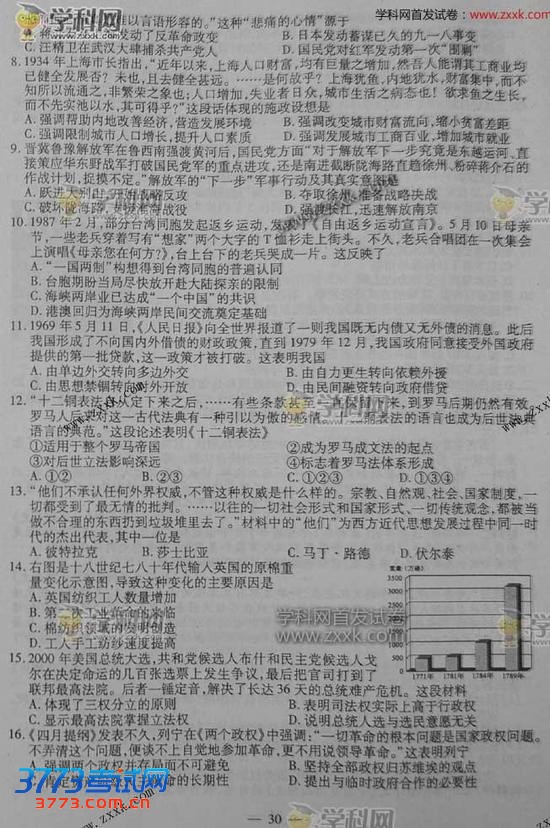 学科网首发试卷 www.zxxk.com
难以言语形容的。”这种“悲痛的心情”源于
发动了反革命政变 B. 日本发动蓄谋已久的九一八事变
C. 汪精卫在武汉大肆捕杀共产党人 D. 国民党对红军发动第一次“围剿”
8. 1934 年上海市长指出,“近年以来,上海人口财富,均有巨量之增加,然吾人能谓其工商业均
已健全发展否?未也,且去健全甚远。……是何故乎?上海犹鱼,内地犹水,财富集中,而不
知所以流通之,非繁荣之象也;人口增加,失业者日众,城市生活之病态也!欲求鱼之生长,
而不先实池以水,其可得乎?”这段话体现的施政设想是
A. 强调帮助内地改善经济,营造发展环境 B. 强调改变城市财富流向,缩小贫富差距
C. 强调限制城市人口增长,提升人口素质 D. 强调发展城市工商百业,增加城市就业
9. 晋冀鲁豫解放军在鲁西南强渡黄河后,国民党方面“对于解放军下一步究竟是东越运河、直
接策应华东野战军打破国民党军的重点进攻,还是南进截断陇海路直趋徐州、粉碎蒋介石的
作战计划,捉摸不定。”解放军的“下一步”军事行动及其真实意图是
A. 跃进大别山,实施战略反攻 B. 夺取徐州,准备战略决战
C. 破坏陇海路,发动淮海战役 D. 强渡长江,迅速解放南京
10. 1987 年 2 月,部分台湾同胞发起返乡运动,发表《自由返乡运动宣言》。5 月 10 日母亲
节,一些老兵穿着写有“想家”两个大字的 T 恤衫走上街头。不久,老兵合唱团在一次集会
上演唱《母亲您在何方?》,台上台下的老兵哭成一片。这反映了
A. “一国两制”构想得到台湾同胞的普遍认同
B. 台胞期盼当局尽快放开赴大陆探亲的限制
C. 海峡两岸业已达成“一个中国”的共识
D. 港澳回归为海峡两岸民间交流奠定基础
11. 1969 年 5 月 11 日,《人民日报》向全世界报道了一则我国既无内债又无外债的消息。此后
我国形成了不向国内外借债的财政政策,直到 1979 年 12 月,我国政府同意接受外国政府
提供的第一批贷款,这一政策才被打破。这表明我国
A. 由单边外交转向多边外交 B. 由自力更生转向依赖外援
C. 由思想禁锢转向对外开放 D. 由民间融资转向政府借贷
12. “十二铜表法从人定下来之后,……有些条款甚至 来,到罗马后期仍然有效。
罗马人后 对这一古代法典有一种引以为傲的感情。 铜表法的语言也成为后世法律
语言的典范。”这段论述表明《十二铜表法》
①适用于整个罗马帝国 ②成为罗马成文法的起点
③对后世立法影响深远 ④标志着罗马法体系形成
A. ①② B. ②③ C. ①②③ D. ②③④
13. “他们不承认任何外界权威,不管这种权威是什么样的。宗教、自然观、社会、国家制度,一
切都受到了最无情的批判。……以往的一切社会形式和国家形式、一切传统观念,都被当
做不合理的东西扔到垃圾堆里去了。”材料中的“他们”为西方近代思想发展过程中同一时
代的杰出代表,其中一位是
A. 彼特拉克 B. 莎士比亚 C. 马丁·路德 D. 伏尔泰
14. 右图是十八世纪七八十年代输入英国的原棉重
量变化示意图,导致这种变化的主要原因是
A. 英国纺织工人数量增加
B. 第二次工业革命的来临
C. 棉纺织领域的发明创造
D. 工人手工纺纱速度提高
重量(万磅)
3500
3000
2500
2000
1500
1000
500
0
1771年 1781年 1784年 1789年
15. 2000 年美国总统大选,共和党候选人布什和民主党候选人戈
尔在决定命运的几百张选票上发生争议,最后把官司打到了
联邦最高法院。后者一锤定音,解决了长达 36 天的总统难产危机。这段材料
A. 体现了三权分立的原则 B. 表明司法权实际上高于行政权
C. 显示最高法院掌握立法权 D. 说明总统人选与选民意愿无关
16. 《四月提纲》发表不久,列宁在《两个政权》中强调:“一切革命的根本问题是国家政权问题。
不弄清这个问题,便谈不上自觉地参加革命,更不用说领导革命。”这表明列宁
A. 强调两个政权并存局面不可避免 B. 坚持全部政权归苏维埃的观点
命的长期性 D. 提出与临时政府合作的必要性
— 30 —
3773考试网
3773.com.cn
学科网
学科网首发试卷
www.zxxk.com